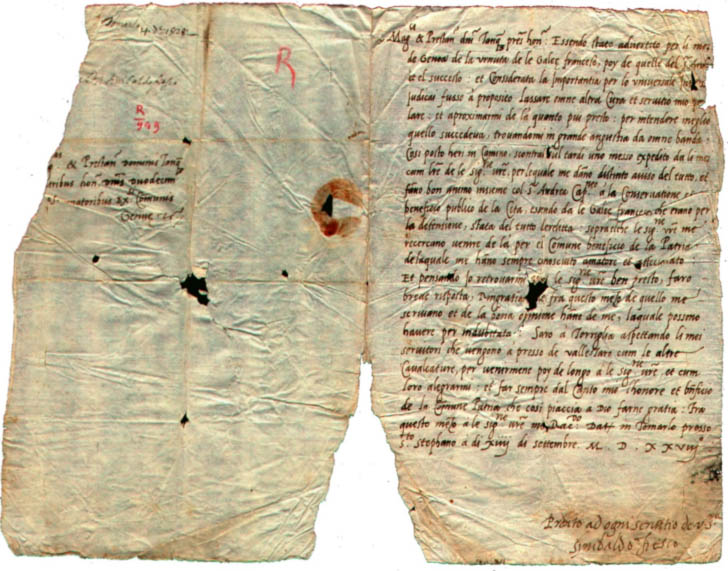 4. 7bre 1528
R
R
949
& Prestan. Domini Tanq.
hon. duodecim
Comunis
Genue
Mag.ci & Prestan. dni Tanq. pres hon. Essendo stato advertito per li mei
de Genoa de la venuta de le Galee francese, poy de quelle del
et el successo: et Considerata la Importantia per lo universale
Judicai fusse a proposito lassare omne altra Cura et servitio mio
lare: et aproximarmi de la quanto piu presto: per intendere meglio
quello succedeva: trovandomi in grande angustia da omne banda.
Cosi posto heri in Camino, scontrai sul tardi uno messo expedito da li mei
cum lre de le sig.rie vre, per lequale me dano distinto aviso del tutto, et
fano bon animo insieme col S. Andrea Cap.neo a la Conservatione et
beneficio publico de la Cita, essendo da le Galee francese che erano per
la detensione, staca del tutto
recercano venire de la per el Comune beneficio de la Patria
delaquale me hano sempre cognosciuto amatore et affectionato
Et pensando Jo retrovarmi le sig.rie vre ben presto, faro
breve risposta, Ringratiando fra questo mezo de quello me
scrivano et de la bona opinione hano de me, laquale possono
havere per indubitata: Saro a Torriglia aspectando li mei
servitori che vengono a presso de valle cum le altre
Cavalcature, per venirmene poy de longo a le sig.rie vre, et cum
loro alegrarmi: et far sempre dal Canto mio l'honore et bnficio
de la Comune Patria che cosi piaccia a Dio farne gratia: Fra
questo mezo a le sig.rie vre mi Rac.do Datt in presso
S.to Stephano a di xiiij di settembre. M. D. X X V iij
Prõto ad ogni servitio de v. S.
Sinibaldo fiesco